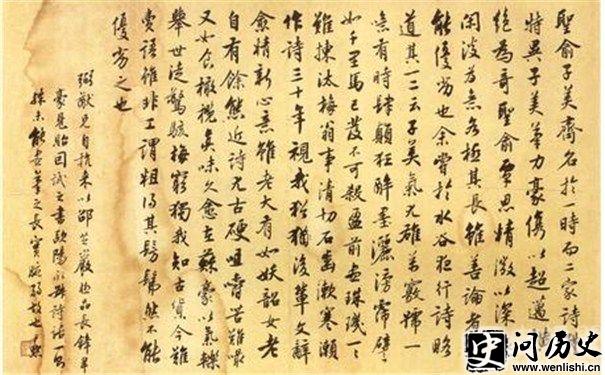 聖俞子美齋名於一時而二家詩
特異子美筆力豪儁以超邁
絕為奇聖俞覃思精微以深
閑淡為意各極其長雖善論者
能優劣也余嘗於水谷夜行詩略
道其一二云子美氣尤雄萬竅號一
噫有時肆顛狂醉墨灑滂霈譬
如千里馬已發不可殺盈前盡珠璣一一
難揀汰梅翁事清切石齒漱寒瀨
作詩三十年視我猶後輩文辭
愈精新心意雖老大有如妖韶女老
自有餘態近詩尤古硬咀嚼苦難嘬
又如食橄欖真味久愈在蘇豪以氣轢
舉世徒驚駭梅窮獨我知古貨今難
賣語雖非工謂粗得其髣髴然不能
優劣之也
弼猷兄自來以邵芝巖極品長鋒羊
毫見貽因試之書歐陽永叔詩話一則
殊未能盡筆之長實腕弱故也
史问历史
www.wenlishi.cn